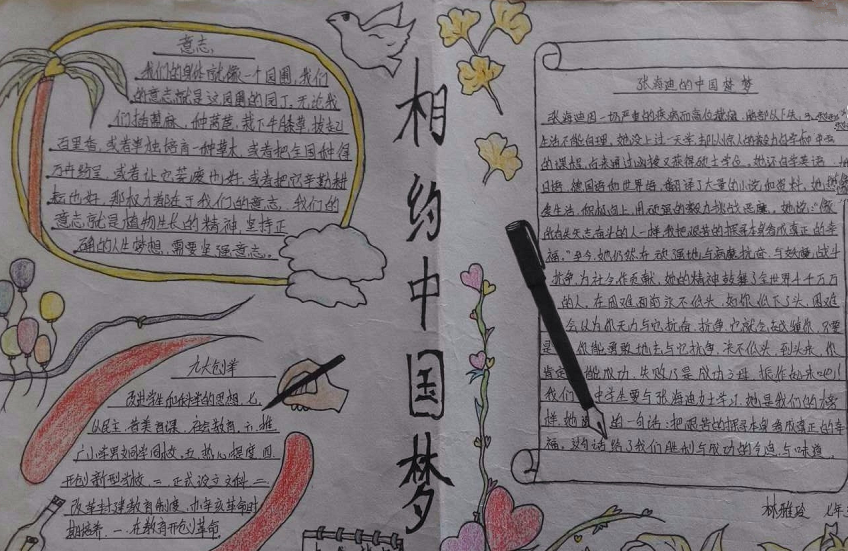 意志
我们的身体就像一个园圃，我们
的意志就是这园圃的园丁，无论我
们插荨麻，种莴苣，栽下牛膝草，拔起
百里香，或者单独培育一种草木，或者把全园种得
万卉纷呈，或者让它荒废也好，或者把它辛勤耕
耘也好，那权力都在于我们的意志，我们的
意志就是植物生长的精神，坚持正
确的人生梦想，需要坚强意志。
九大创举
改进学生和科学的思想，七、
以民主 社会教育，六、推
广小学男女同学同校，五、热心 四
开创新型学校，二、正式设立文科 三
改革封建教育制度，办
一、在教育开创革命
相约中国梦
张海迪的中国梦 梦
张海迪因一场严重的疾病而高位截瘫，
生活不能自理，她没上过一天学，却以惊人的毅力自学
的课程，后来通过函授又获得硕士学位，她还自学英语
日语、德国语和世界语，翻译了大量的小说和资料，她
爱生活，积极向上，用顽强的毅力挑战恶魔，她说：“像
所有矢志奋斗的人一样，我把艰苦的探寻本身当成真正的幸
福。”至今，她仍然在顽强地与病魔抗争，与
抗争，为社会作贡献，她的精神鼓舞了全世界千千万万
的人，在困难面前永不低头，如你低下了头，困难
会认为你无力与它抗争，抗争，它就会 你，只要
是 你能勇敢地去与它抗争，决不低头，到头来，你
肯定 能成功，失败乃是成功之母，振作起来吧！
我们 中学生要与张海迪女士学习，她是我们的榜
样，她 的一句话：把艰苦的探寻本身当成真正的幸
福，这句话给了我们胜利与成功的 与味道。
林雅玲 七年